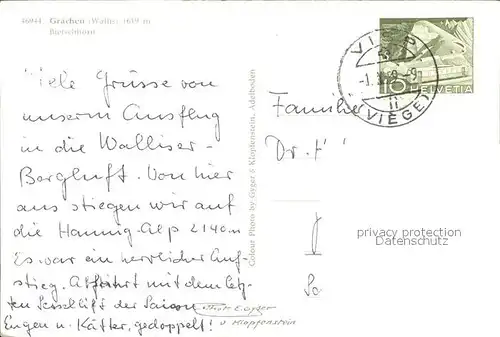 46941 Grächen (Wallis) 1619 m
Bietschhorn
Viele Grüsse von
unserm Ausflug
in die Walliser-
Bergluft. Von hier
aus stiegen wir auf
die Hannig-Alp 2140 m
Es war ein herrlicher Auf-
stieg. Abfahrt mit dem letz-
ten Sessellift der Saison
Eugen u. Käther, gedoppelt!
Gyger
u Klopfenstein
Colour Photo by Gyger & Klopfenstein, Adelboden
VISP
(VIÈGE)
10 HELVETIA
Familie
Dr.
privacy protection
Datenschutz